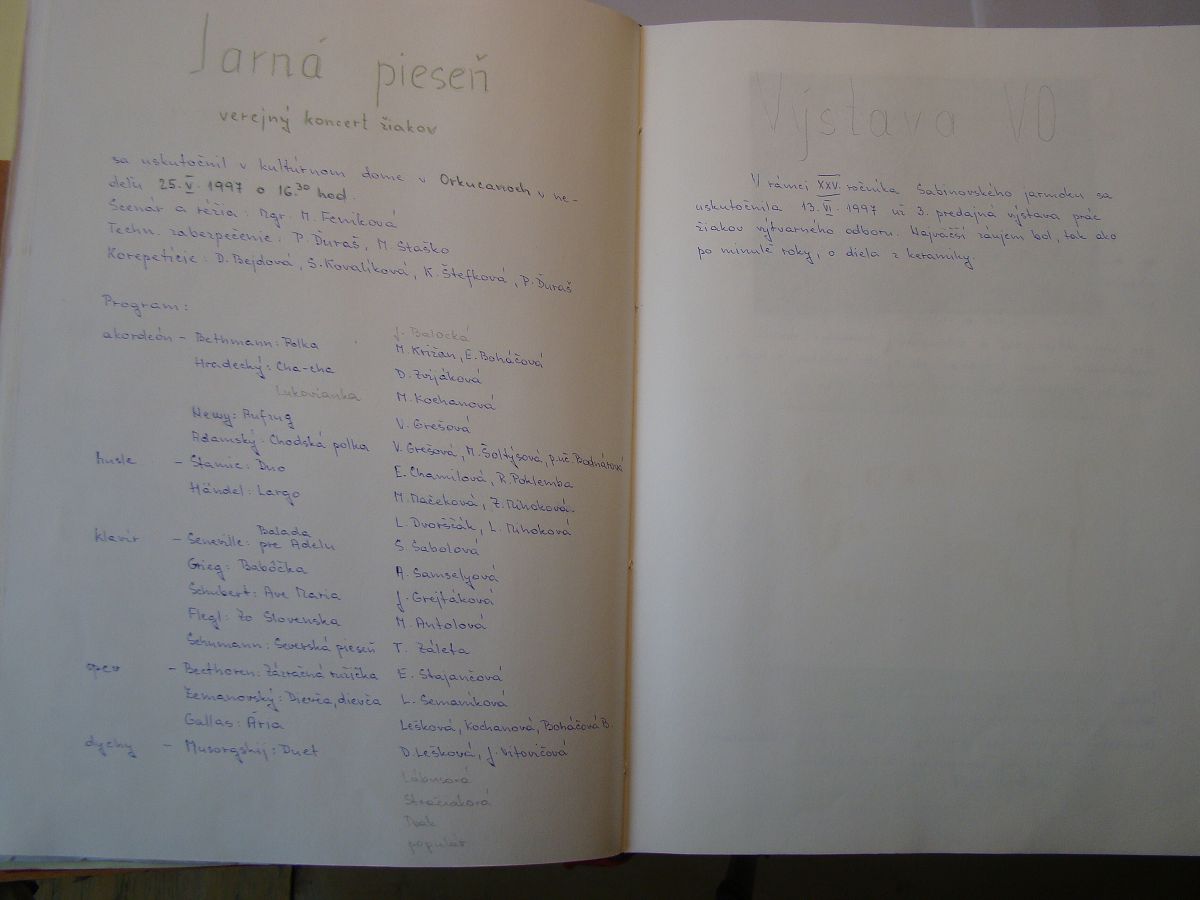 Jarná pieseň
verejný koncert žiakov
sa uskutočnil v kultúrnom dome v Orkucanoch v ne-
deľu 25.V.1997 o 16.30 hod.
Scenár a réžia: Mgr. M. Feníková
Techn. zabezpečenie: P. Ďuraš, M. Staško
Korepetície: D. Bejdová, S. Kovalíková, K. Štefková, P. Ďuraš
Program:
J. Balocká
akordeón - Bethmann: Polka M. Križan, E. Boháčová
Hradecký: Cha-cha D. Zvijáková
Lukovianka M. Kochanová
Newy: Aufzug V. Grešová
Adamský: Chodská polka V. Grešová, M. Šoltýsová, p.uč. Bodnárová
husle - Stamic: Duo E. Chamilová, R. Poklemba
Händel: Largo M. Mačeková, Z. Mihoková
L. Dvorščák, L. Mihoková
klavír - Seneville: Balada pre Adelu S. Sabolová
Grieg: Babôčka A. Samselyová
Schubert: Ave Maria J. Grejtáková
Flegl: Zo Slovenska M. Antolová
Schumann: Severská pieseň T. Záleta
spev - Beethoven: Zázračná ružička E. Stajančová
Zemanovský: Dievča, dievča L. Semaníková
Gallas: Ária Lešková, Kochanová, Boháčová B.
dychy - Musorgskij: Duet D. Lešková, J. Vitovičová
Lábusová
Stračiaková
Výstava VO
V rámci XXV. ročníka Sabinovského jarmoku sa
uskutočnila 13.VI.1997 už 3. predajná výstava prác
žiakov výtvarného odboru. Najväčší záujem bol, tak ako
po minulé roky, o diela z keramiky.